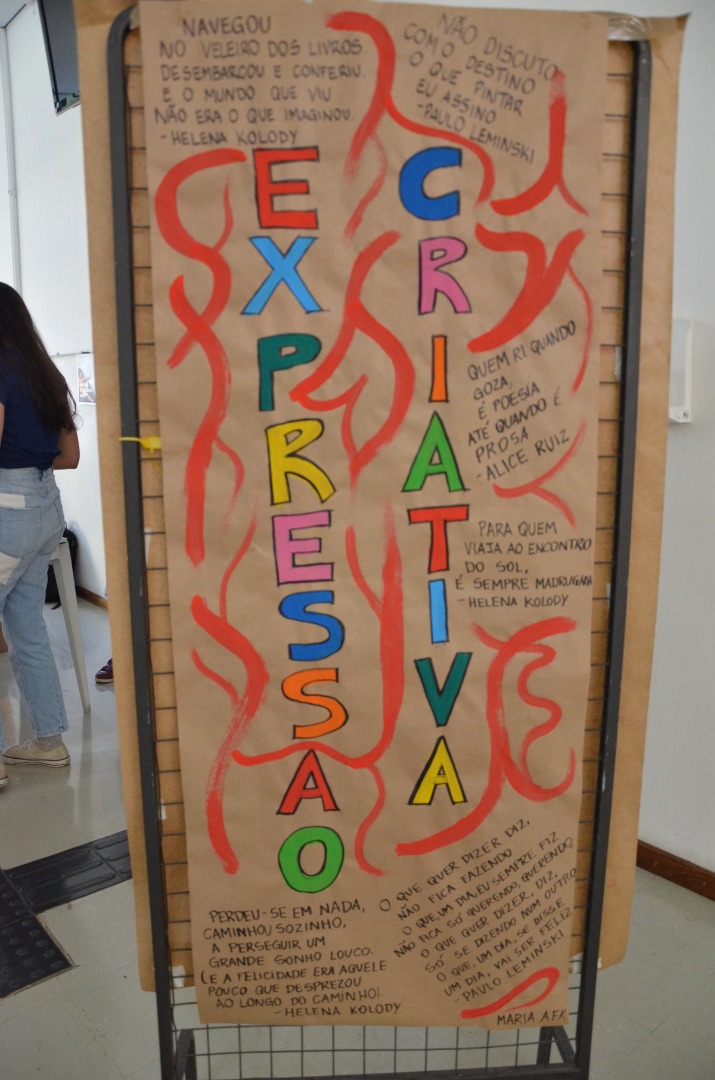 NAVEGOU
NO VELEIRO DOS LIVROS.
DESEMBARCOU E CONFERIU.
E O MUNDO QUE VIU
NÃO ERA O QUE IMAGINOU.
- HELENA KOLODY
NÃO DISCUTO
COM O DESTINO
O QUE PINTAR
EU ASSINO
- PAULO LEMINSKI
EXPRESSAO
CRIATIVA
QUEM RI QUANDO
GOZA,
É POESIA
ATÉ QUANDO É
PROSA
- ALICE RUIZ
PARA QUEM
VIAJA AO ENCONTRO
DO SOL,
É SEMPRE MADRUGADA
- HELENA KOLODY
PERDEU-SE EM NADA,
CAMINHOU SOZINHO,
A PERSEGUIR UM
GRANDE SONHO LOUCO.
(E A FELICIDADE ERA AQUELE
POUCO QUE DESPREZOU
AO LONGO DO CAMINHO).
- HELENA KOLODY
O QUE QUER DIZER DIZ.
NÃO FICA FAZENDO
O QUE, UM DIA, EU SEMPRE FIZ
NÃO FICA SÓ QUERENDO, QUERENDO,
O QUE QUER DIZER, DIZ.
SÓ SE DIZENDO NUM OUTRO
O QUE, UM DIA, SE DISSE
UM DIA, VAI SER FELIZ
- PAULO LEMINSKI
MARIA A.F.K